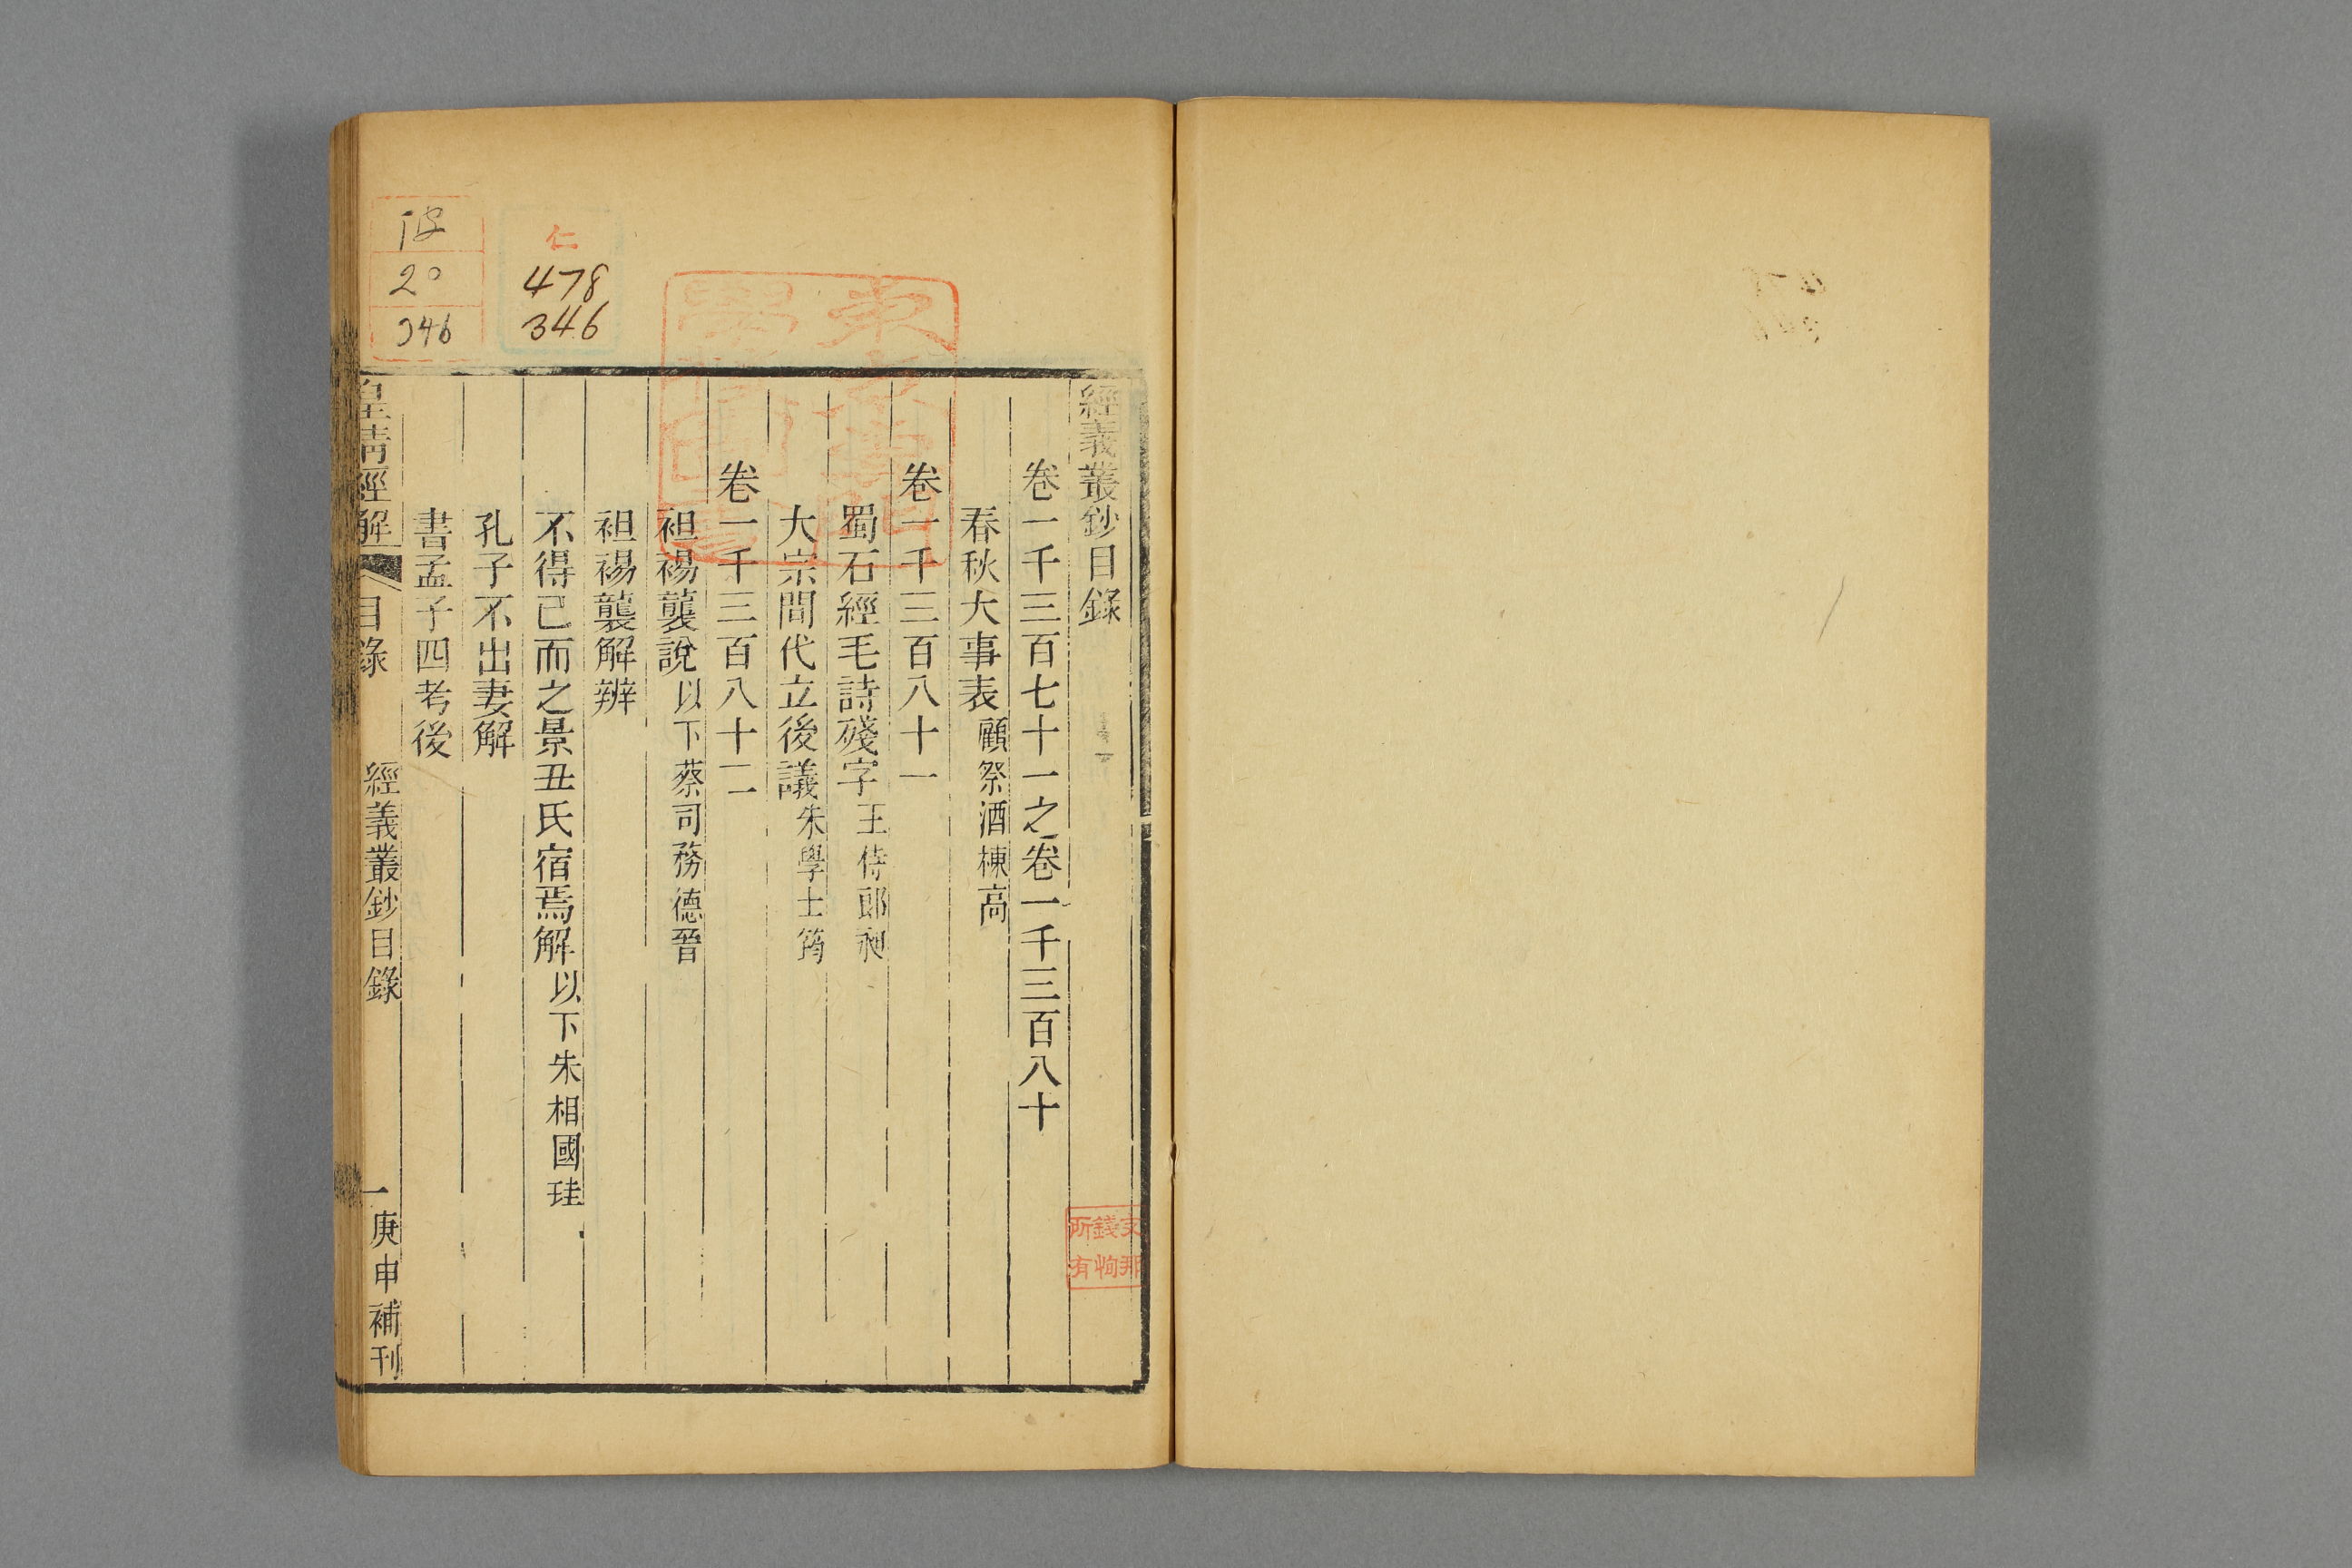 經義叢鈔目錄
卷一千三百七十一之卷一千三百八十
春秋大事表 顧祭酒棟高
卷一千三百八十一
蜀石經毛詩殘字 王侍郎昶
大宗間代立後議 朱學士筠
卷一千三百八十二
袒裼襲說 以下蔡司務德晉
袒裼襲解辨
不得已而之景丑氏宿焉解 以下朱相國珪
孔子不出妻解
書孟子四考後
皇清經解 目錄 一
經義叢鈔目錄 庚申補刊
仁
478
346
20
346
文那
錢恂
所有